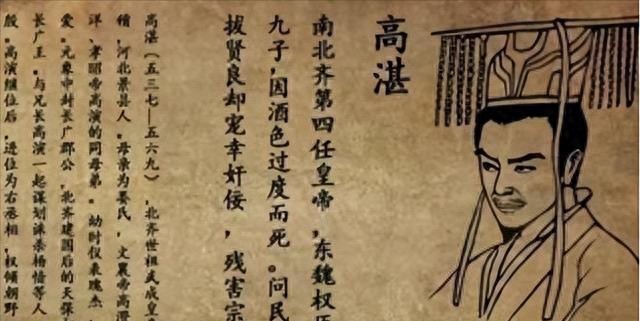 高湛
南北齐第四任皇帝，东魏权臣
九子，因酒色过度而死。问民
拔贤良却宠幸奸佞，残害宗
高湛（五三七—五六九），北齐世祖武成皇
，河北景县人。母亲为娄氏，文襄帝高澄
洋、孝昭帝高演的同母弟。幼时仪表瑰杰，
爱。元象中封长广郡公，北齐建国后的天保
长广王。与兄长高演一起谋划诛杀杨愔等人
殷。高演继位后，进位为右丞相，权倾朝野